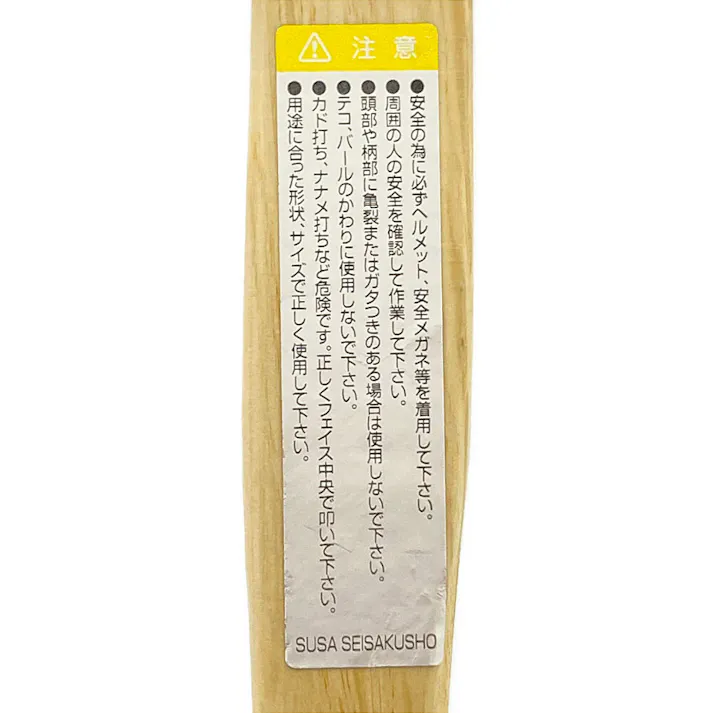 注意
●安全の為に必ずヘルメット、安全メガネ等を着用して下さい。
●周囲の人の安全を確認して作業して下さい。
●頭部や柄部に亀裂またはガタつきのある場合は使用しないで下さい。
●テコ、バールのかわりに使用しないで下さい。
●カド打ち、ナナメ打ちなど危険です。正しくフェイス中央で叩いて下さい。
●用途に合った形状、サイズで正しく使用して下さい。
SUSA SEISAKUSHO